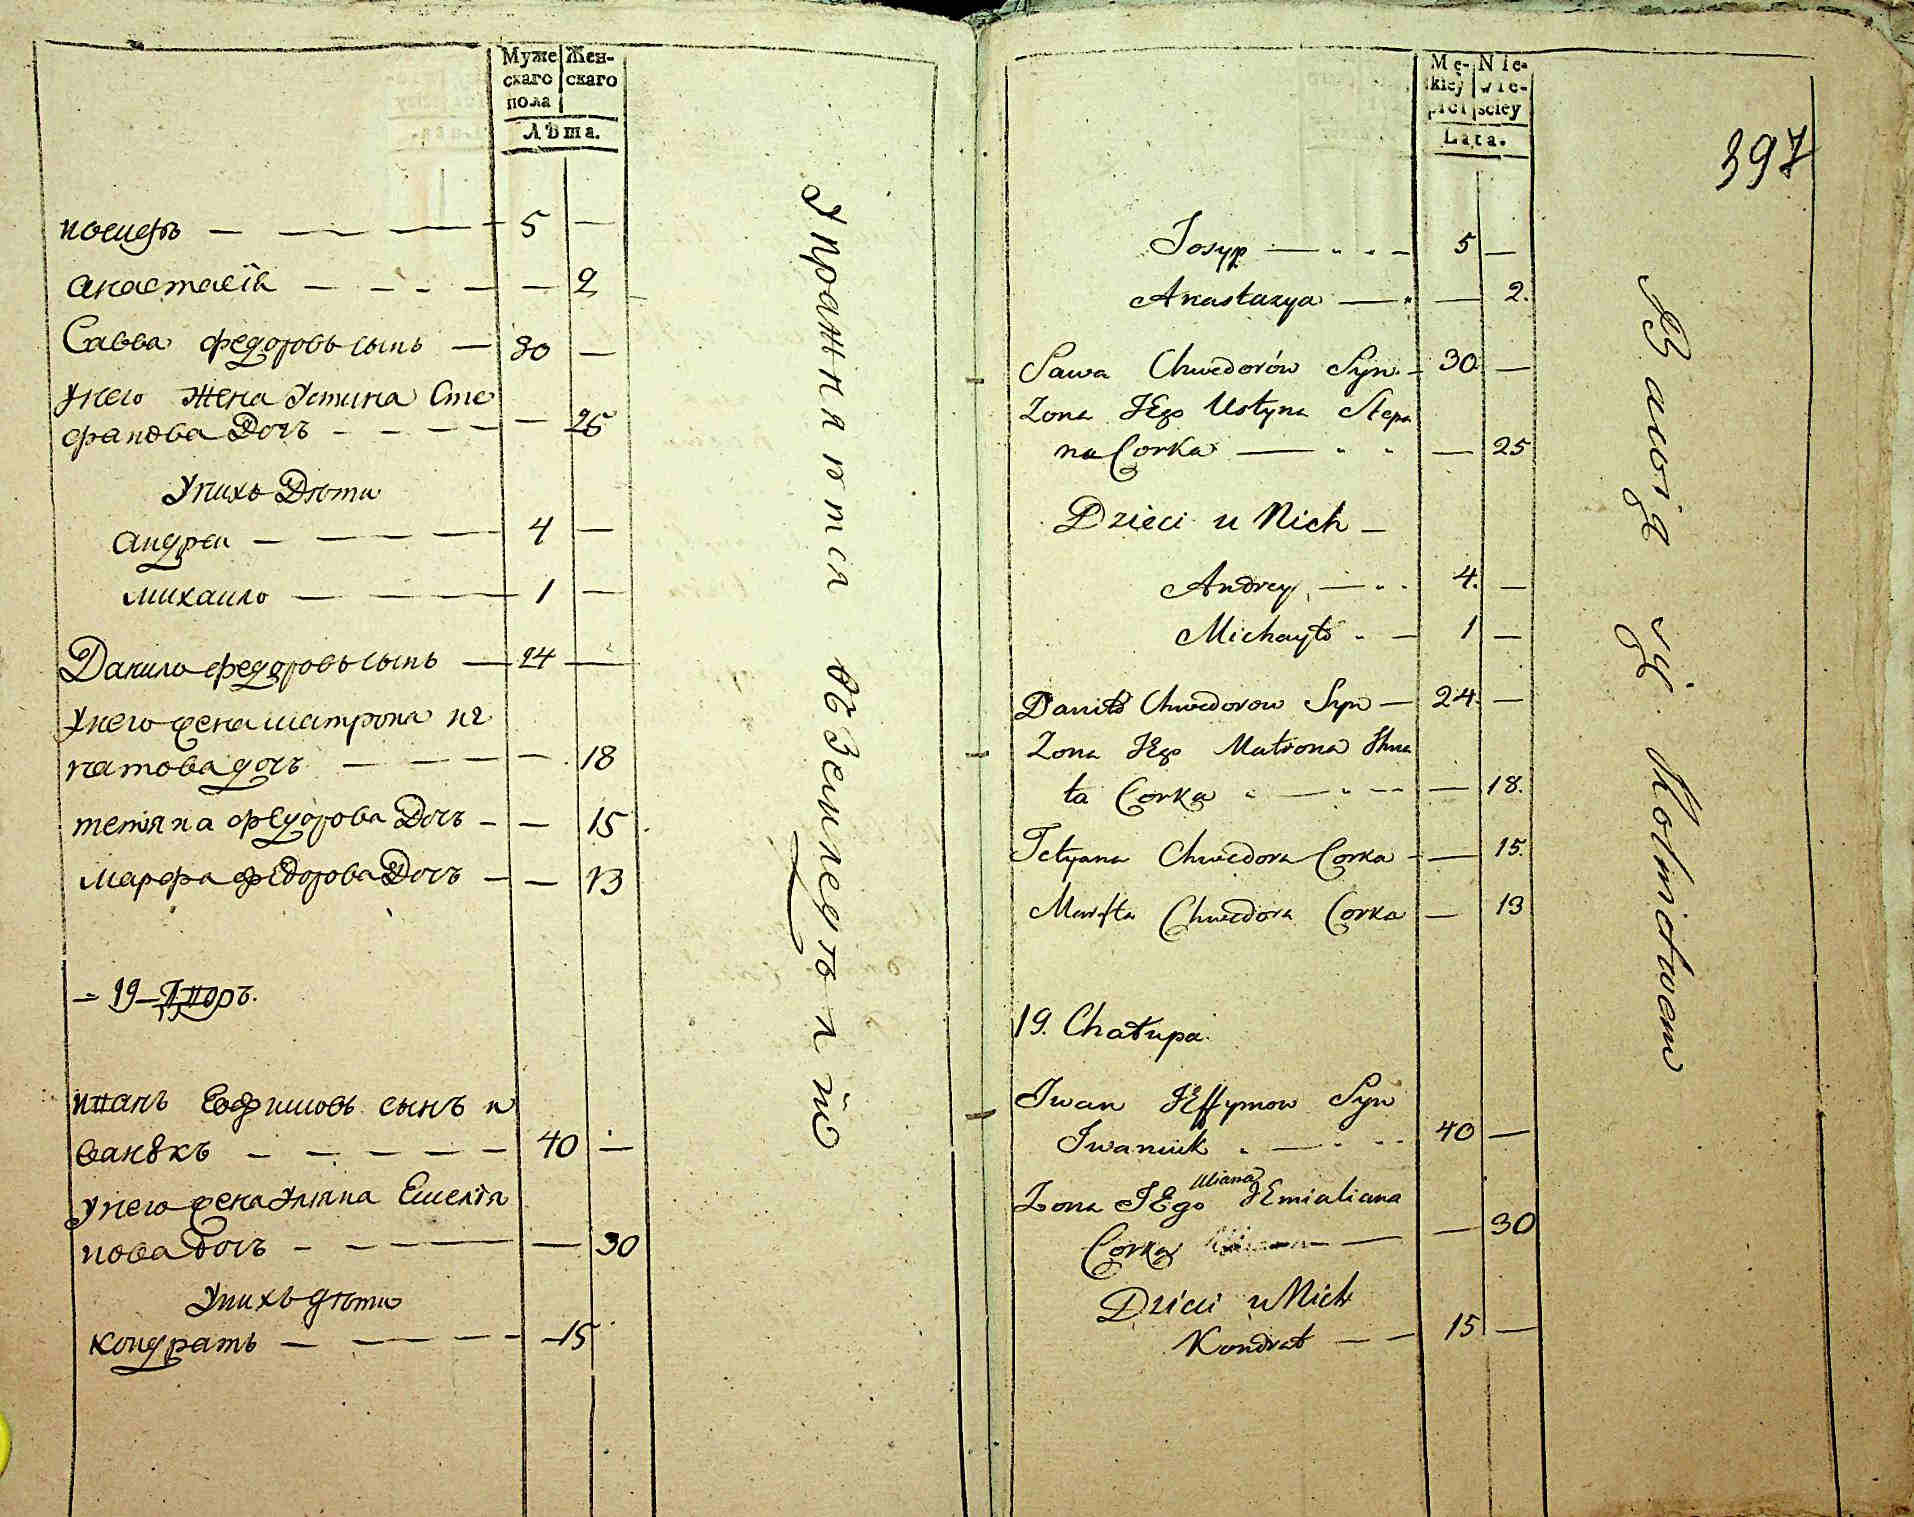 Муже Жен-
скаго скаго
пола
Лѣта.
иосифъ — — — — 5 —
анастасїя — — — — — 2
Савва федоровъ сынъ — 30 —
Унего Жена Устина Сте
фанова Дочъ — — — — — 25
Унихъ Дѣти
андреи — — — — 4 —
михаило — — — — 1 —
Данило федоровъ сынъ — 24 —
Унего жена матрона иг
натова дочъ — — — — — 18
тетяна федорова Дочъ — — 15
марфа федорова Дочъ — — 13
19 Дворъ.
иванъ Ефимовъ сынъ и
ванюкъ — — — — — 40 —
Унего жена Уляна Емелїя
нова дочъ — — — — — 30
Унихъ дѣти
кондратъ — — — — 15
Упражняются въ Земледѣлїи
Mę- Nie-
kiey wie-
płci sciey
Lata.
397
Josyp — 5 —
Anastazya — — 2.
Sawa Chwedorów Syn — 30 —
Zona JEgo Ustyna Stepa
na Corka — — 25
Dzieci u Nich —
Andrey — 4. —
Michayło — 1 —
Daniło Chwedorow Syn — 24. —
Zona JEgo Matrona Ihna
ta Corka — — 18.
Tetyana Chwedora Corka — — 15.
Marfta Chwedora Corka — 13
19. Chałupa.
Jwan JEffymow Syn
Jwaniuk — 40 —
Uliana
Zona JEgo JEmialiana
Corka — — 30
Dzieci u Nich
Kondrat — — 15 —
Bawią się Rolnictwem